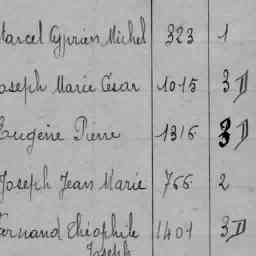 Marcel Cyprien Michel 323 1
Joseph Marie César 1015 3 D
Eugène Pierre 1316 3 D
Joseph Jean Marie 766 2
Fernand Théophile 1401 3 D
Joseph